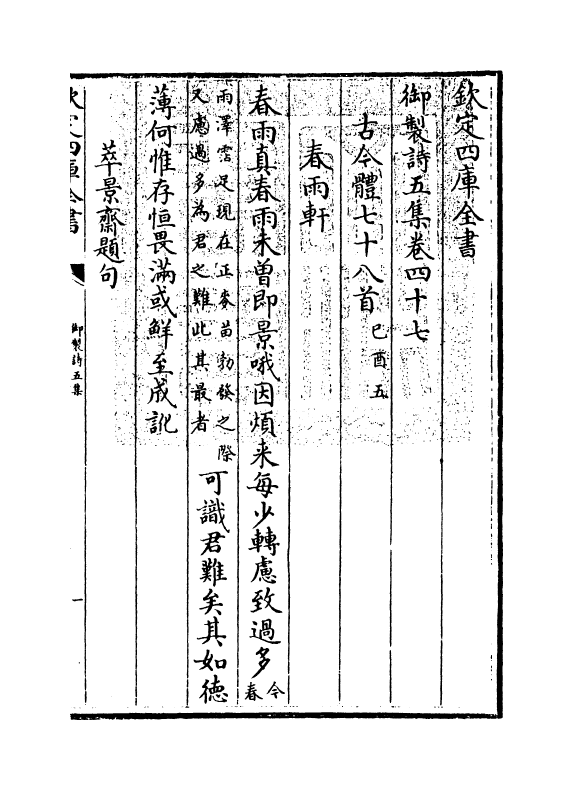 欽定四庫全書
御製詩五集卷四十七
古今體七十八首 己酉五
春雨軒
春雨真春雨未曾即景哦因煩来每少轉慮致過多 今春
雨澤霑足現在正麥苗勃發之際
又慮過多為君之難此其最者
可識君難矣其如徳
薄何惟存恒畏滿或鮮至成訛
萃景齋題句
欽定四庫全書
御製詩五集
一